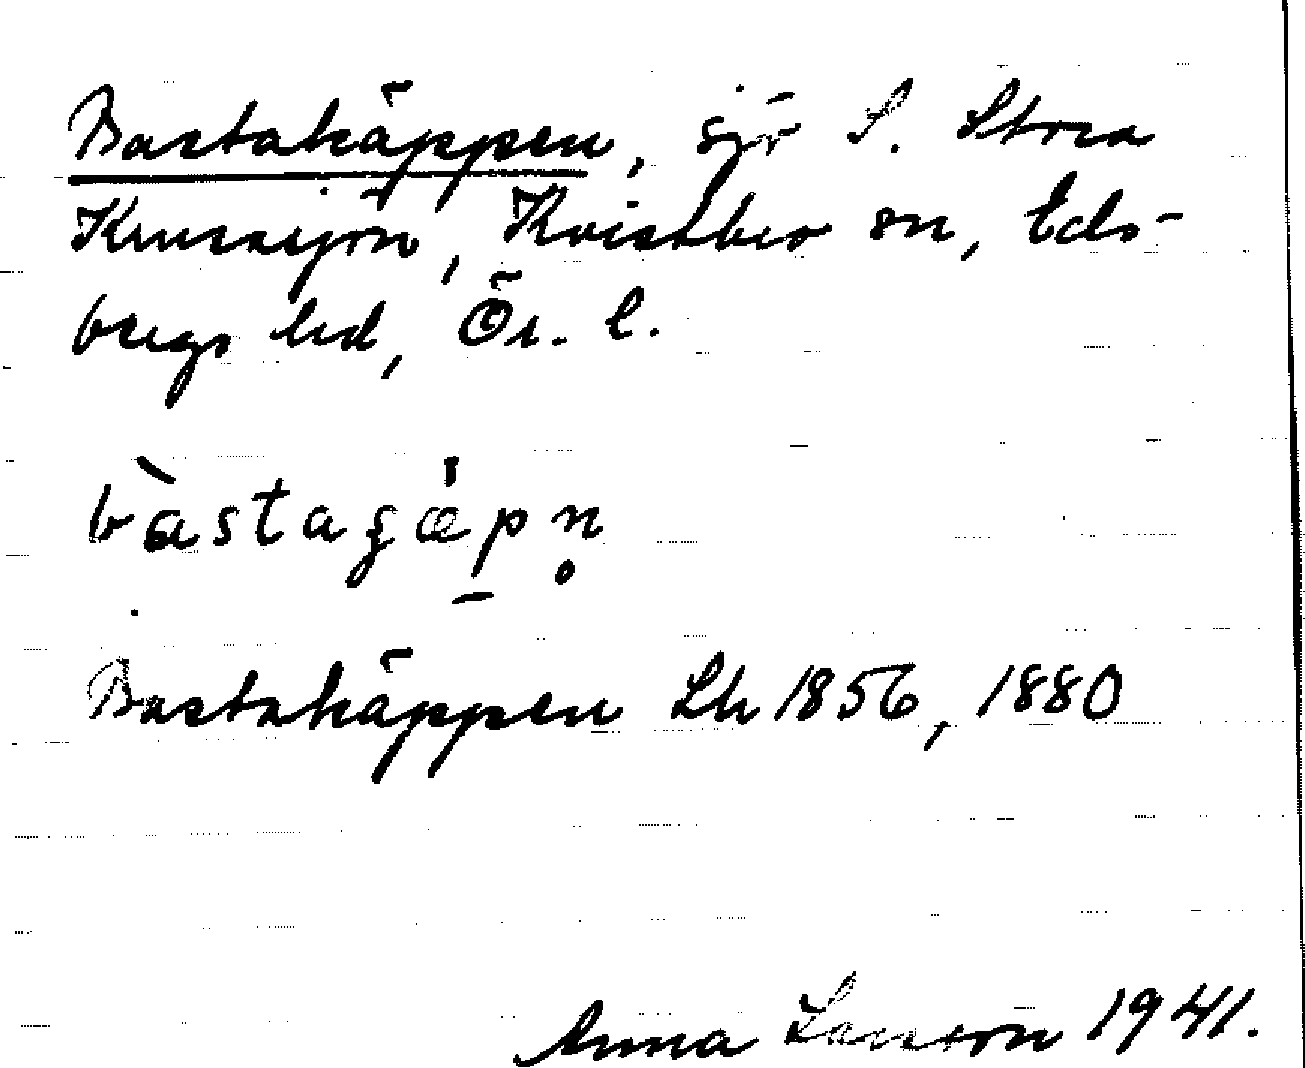 Bastakäppen, sjö S. Stora
Krussjön, Kvistbro sn, Eds-
bergs hd, Ör. l.
bàstagæ̍p̠n̥
Bastakäppen Lh 1856, 1880
Anna Larsson 1941.